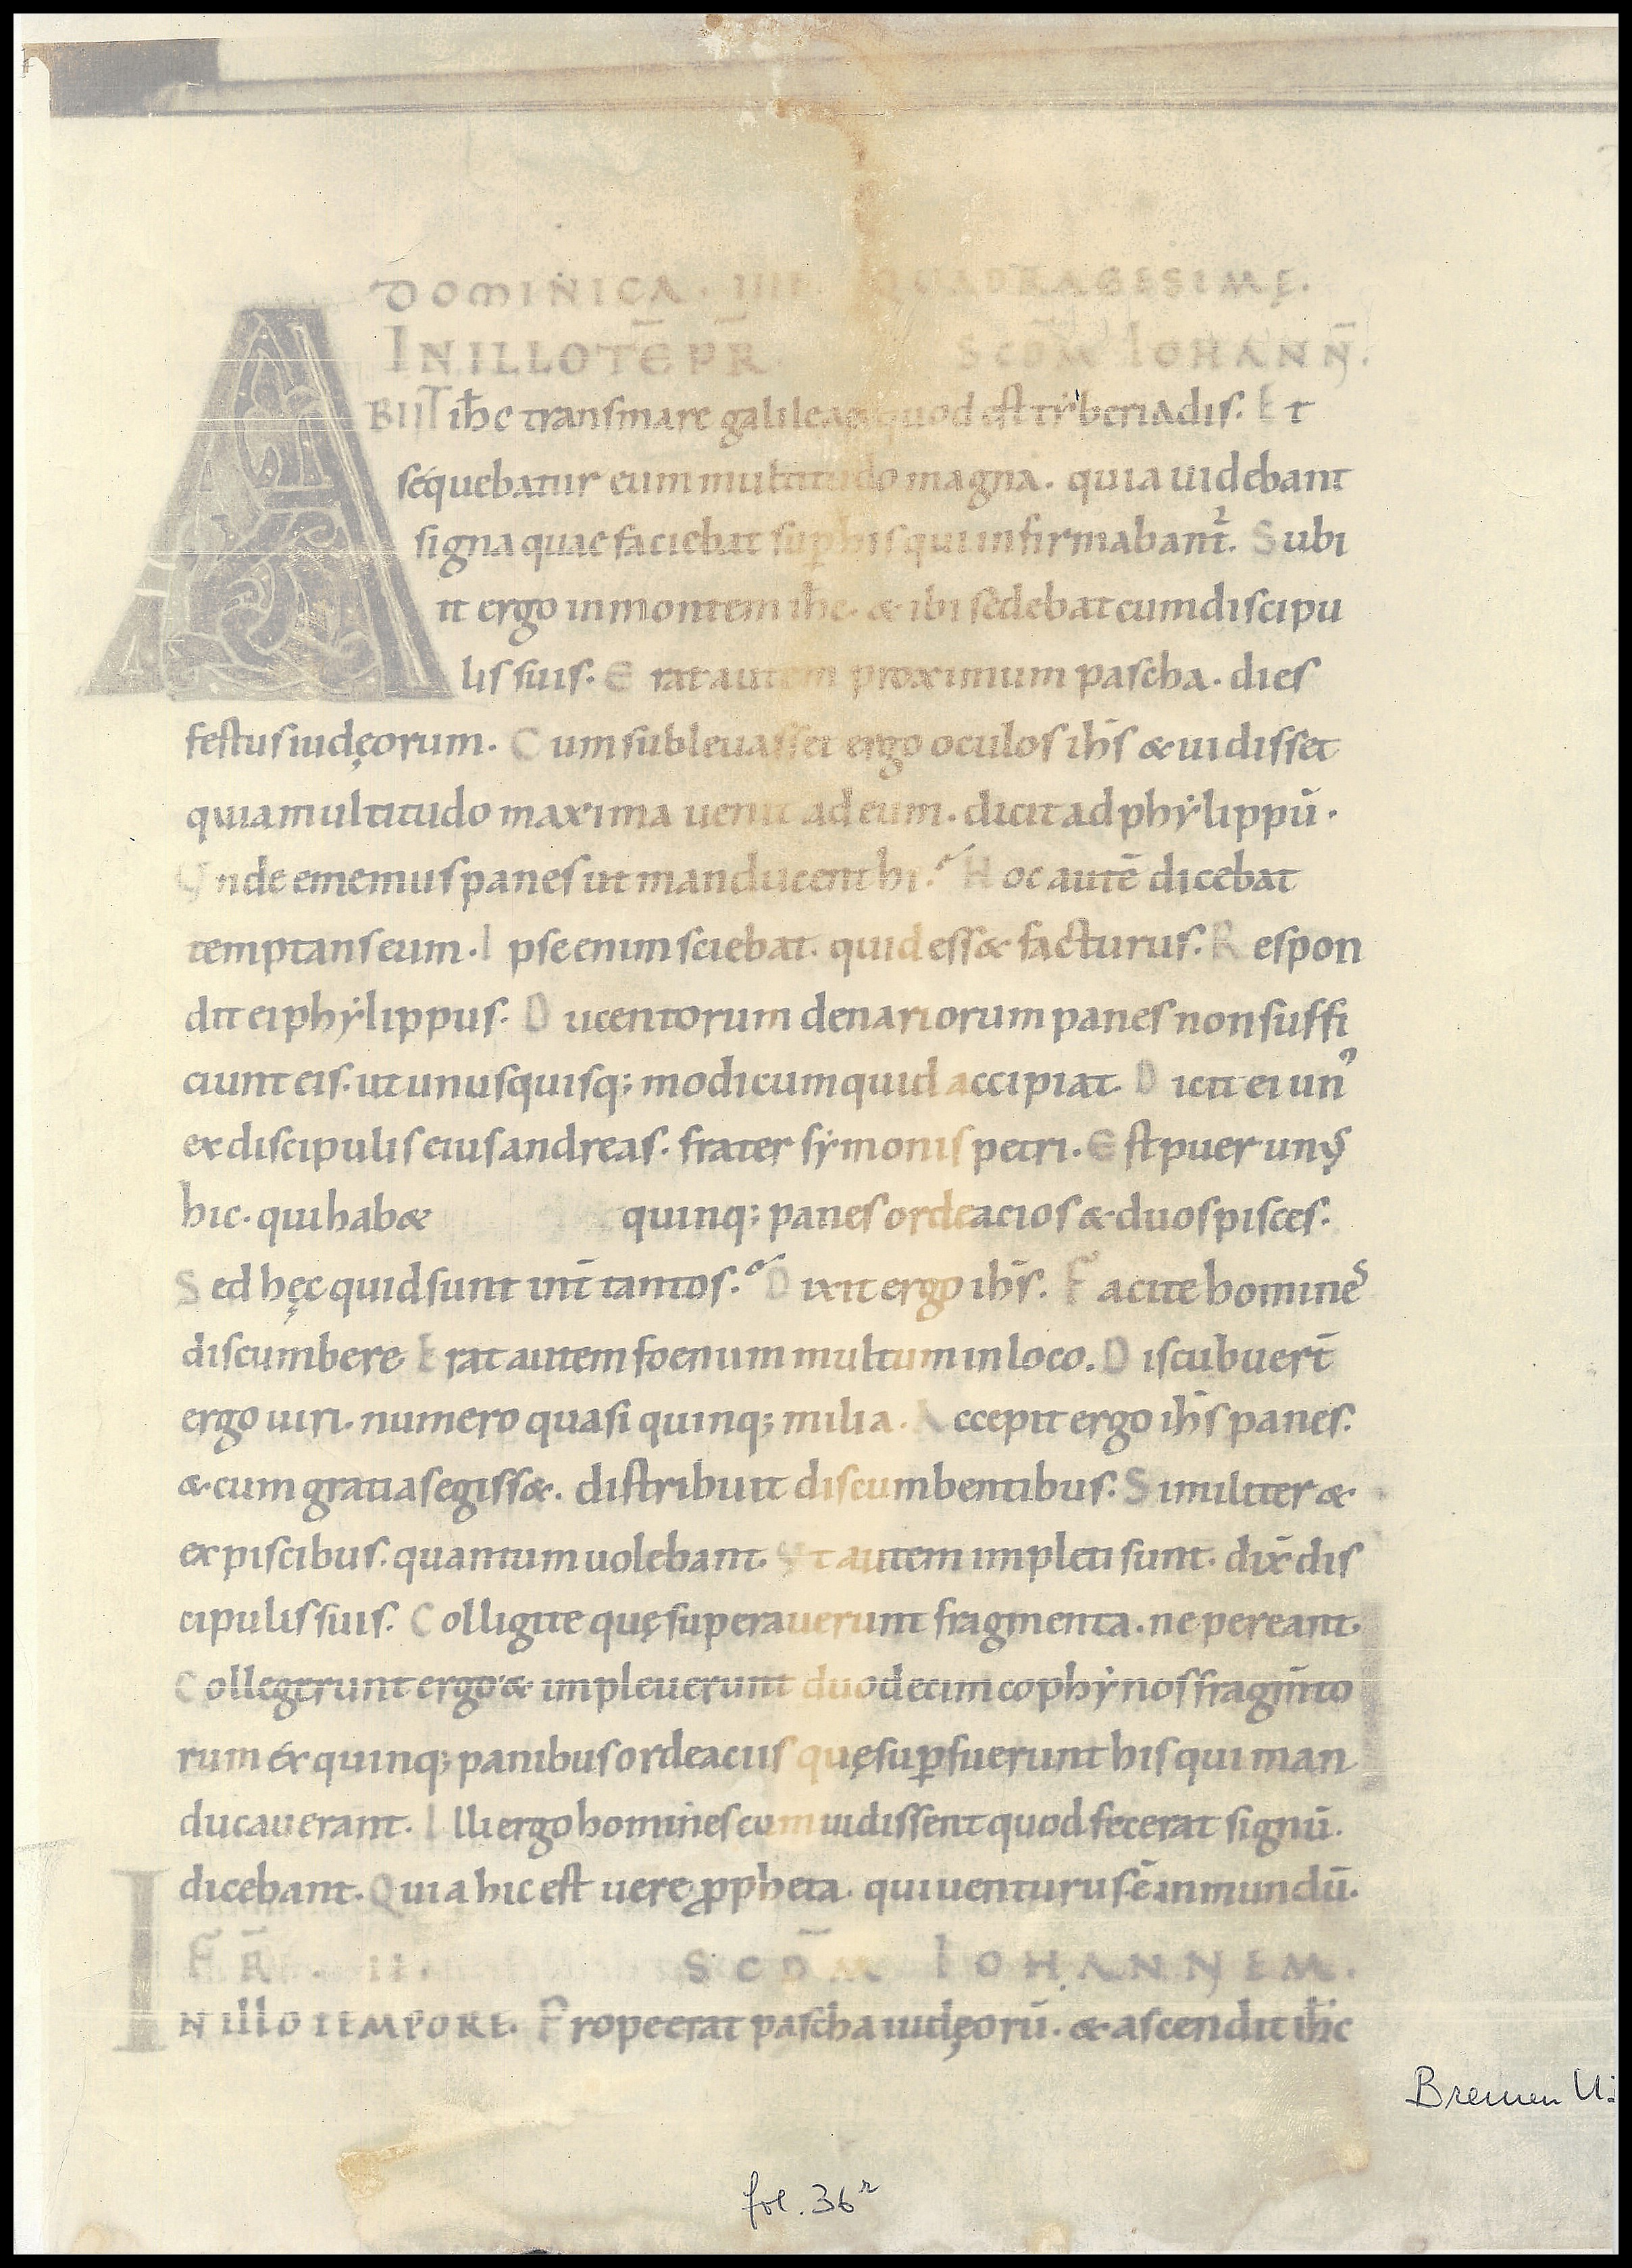 DOMINICA. IIII QUADRAGESIMĘ.
IN ILLO TE̅ PR̅. SCDM̅ IOHANN̅.
ABIIT ihc̅ trans mare galileae quod est tẏberiadis. Et
sequebatur eum multitudo magna. quia uidebant
signa quae faciebat sup̱ his qui infirmabant᷑. Subi
it ergo in montem ihc̅. & ibi sedebat cum discipu
lis suis. Erat autem proximum pascha. dies
festus iudęorum. Cum subleuasset ergo oculos ihs̅ & uidisset
quia multitudo maxima uenit ad eum. dicit ad phẏlippu̅.
Vnde ememus panes ut manducent hi? Hoc aute̅ dicebat
temptans eum. Ipse enim sciebat. quid ess& facturus. Respon
dit ei phẏlippus. Ducentorum denariorum panes non suffi
ciunt eis. ut unusquisq; modicum quid accipiat. Dicit ei un᾽
ex discipulis eius andreas. frater sẏmonis petri. Est puer unus
hic. qui hab& quinq; panes ordeacios & duos pisces.
Sed hęc quid sunt int̅ tantos? Dixit ergo ihs̅. Facite homines
discumbere. Erat autem foenum multum in loco. Discubuert̅
ergo uiri. numero quasi quinq; milia. Accepit ergo ihs̅ panes.
& cum gratias egiss&. distribuit discumbentibus. Similiter &
ex piscibus. quantum uolebant. Vt autem impleti sunt. dix̅ dis
cipulis suis. Colligite quę superauerunt fragmenta. ne pereant.
Collegerunt ergo & impleuerunt duodecim cophẏnos fragm̅to
rum éx quinq; panibus ordeaciis quę sup̱fuerunt his qui man
ducauerant. Illi ergo homines cum uidissent quod fecerat signu̅.
dicebant. Quia hic est uere ꝓpheta. qui uenturus e̅ in mundu̅.
FR̅. II. SCDM̅ IOHANNEM.
IN ILLO TEMPORE. Properat pascha iudęoru̅. & ascendit ihc̅
Bremen U
fol. 36r